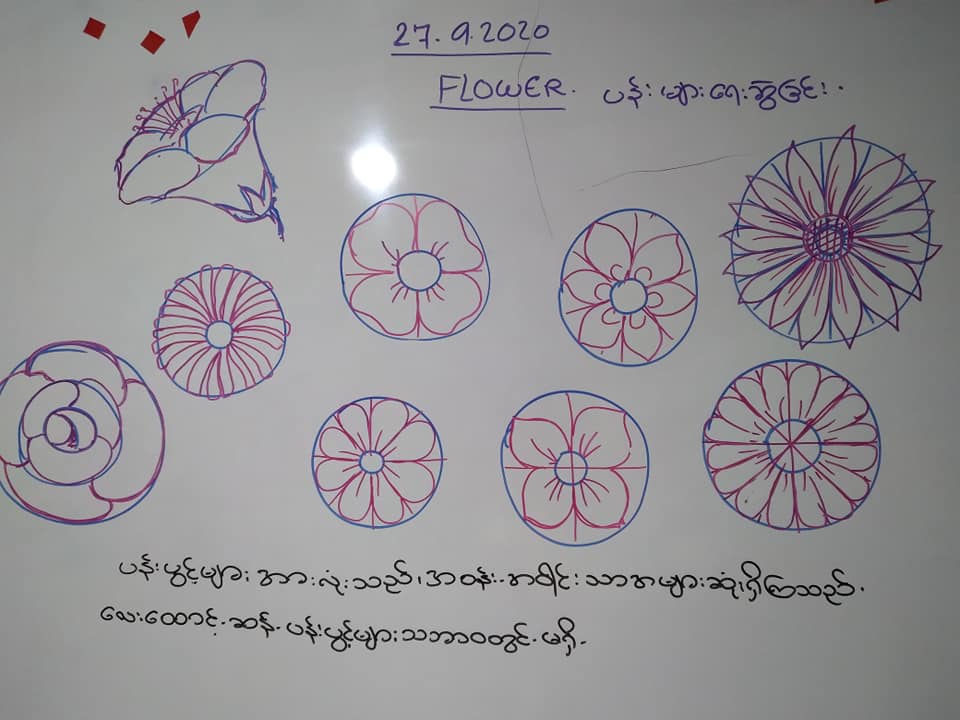 27.9.2020
FLOWER. ပန်းများရေးဆွဲခြင်း.
ပန်းပွင့်များအားလုံးသည်၊အဝန်း.အဝိုင်းသာအများဆုံးရှိကြသည်.
လေးထောင့်.ဆန်.ပန်းပွင့်များသဘာဝတွင်.မရှိ.